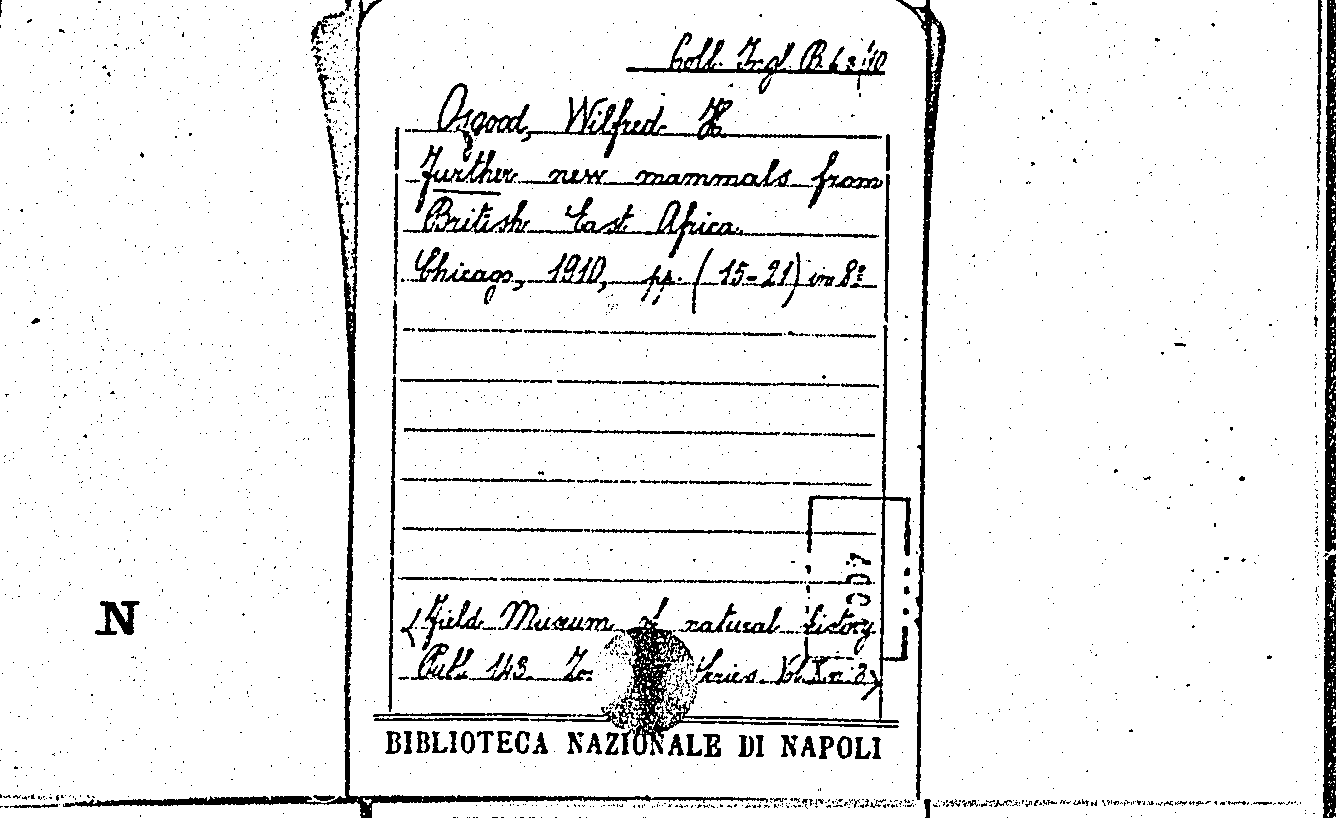 Coll. Ingl. B.
Osgood, Wilfred H.
Further new mammals from
British East Africa.
Chicago, 1910, pp. (15-21) in 8º
N
(Field Museum of natural history
Publ. 143. Zo series. Vol. X n. 3)
BIBLIOTECA NAZIONALE DI NAPOLI